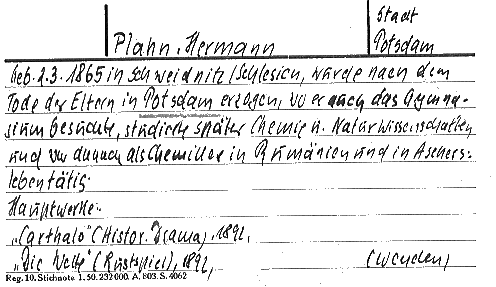 Stadt
Plahn, Hermann Potsdam
geb. 2.3. 1865 in Schweidnitz/Schlesien, wurde nach dem
Tode der Eltern in Potsdam erzogen, wo er auch das Gymna-
sium besuchte, studierte später Chemie u. Naturwissenschaften
und war danach als Chemiker in Rumänien und in Aschers-
leben tätig.
Hauptwerke:
"Carthalo" (Histor. Drama), 1892,
"Die Wette" (Lustspiel), 1892, (wenden)
Reg. 10. Stichnote 1. 50. 232 000. A. 803. S. 4062